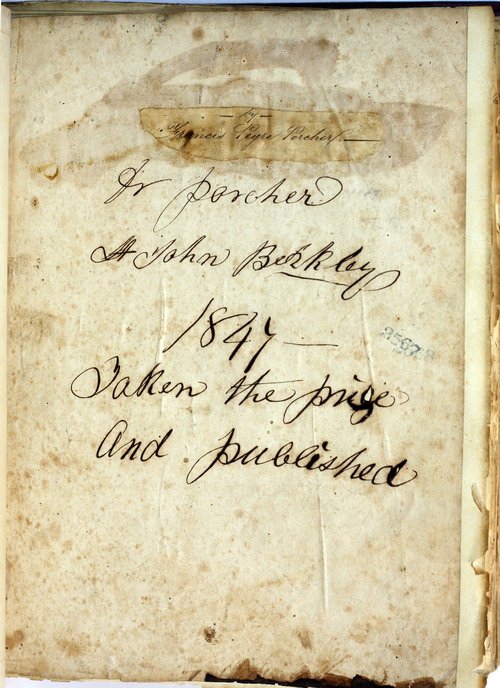 — by —
Francis Peyre Porcher. —
Dr porcher
St John Berkley
1847 —
Taken the prize
And published